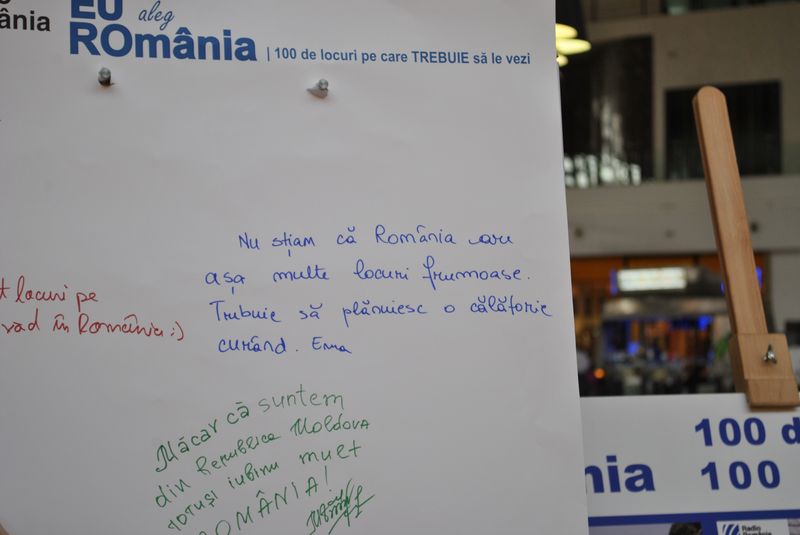 ânia
EU aleg
ROmânia | 100 de locuri pe care TREBUIE să le vezi
Nu știam că România are
așa multe locuri frumoase.
Trebuie să plănuiesc o călătorie
curând. Ema
locuri pe
vad în România :)
Măcar că suntem
din Republica Moldova
totuși iubim mult
ROMÂNIA!
100 d
nia 100
Radio
România